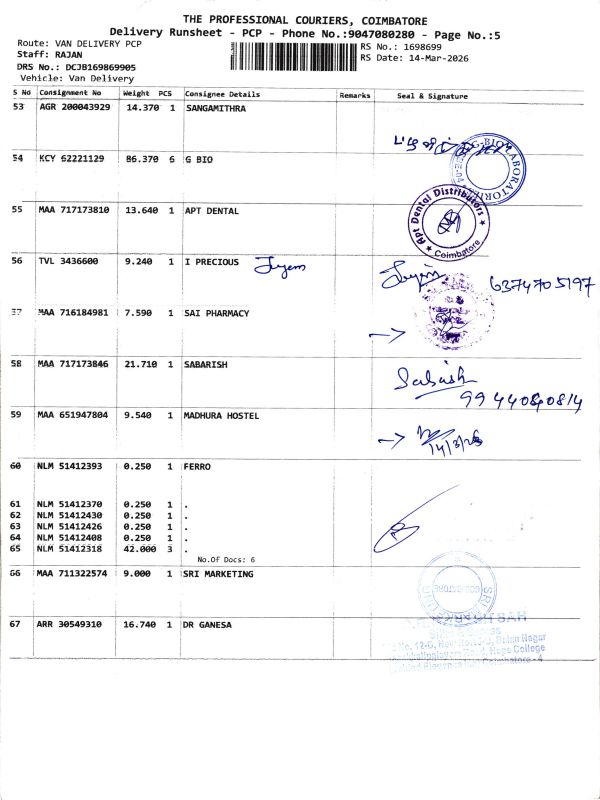 THE PROFESSIONAL COURIERS, COIMBATORE
Delivery Runsheet - PCP - Phone No.:9047080280 - Page No.:5
Route: VAN DELIVERY PCP
Staff: RAJAN
DRS No.: DCJB169869905
Vehicle: Van Delivery
RS No.: 1698699
RS Date: 14-Mar-2026
S No Consignment No Weight PCS Consignee Details Remarks Seal & Signature
53 AGR 200043929 14.370 1 SANGAMITHRA
54 KCY 62221129 86.370 6 G BIO
55 MAA 717173810 13.640 1 APT DENTAL
Apt Dental Distributors
Coimbatore
56 TVL 3436600 9.240 1 I PRECIOUS
6374705197
37 MAA 716184981 7.590 1 SAI PHARMACY
58 MAA 717173846 21.710 1 SABARISH
Sabarish
9944080814
59 MAA 651947804 9.540 1 MADHURA HOSTEL
14/3/26
60 NLM 51412393 0.250 1 FERRO
61 NLM 51412370 0.250 1 .
62 NLM 51412430 0.250 1 .
63 NLM 51412426 0.250 1 .
64 NLM 51412408 0.250 1 .
65 NLM 51412318 42.000 3 .
No.Of Docs: 6
66 MAA 711322574 9.000 1 SRI MARKETING
COIMBATORE
67 ARR 30549310 16.740 1 DR GANESA
Hope College
Coimbatore - 4